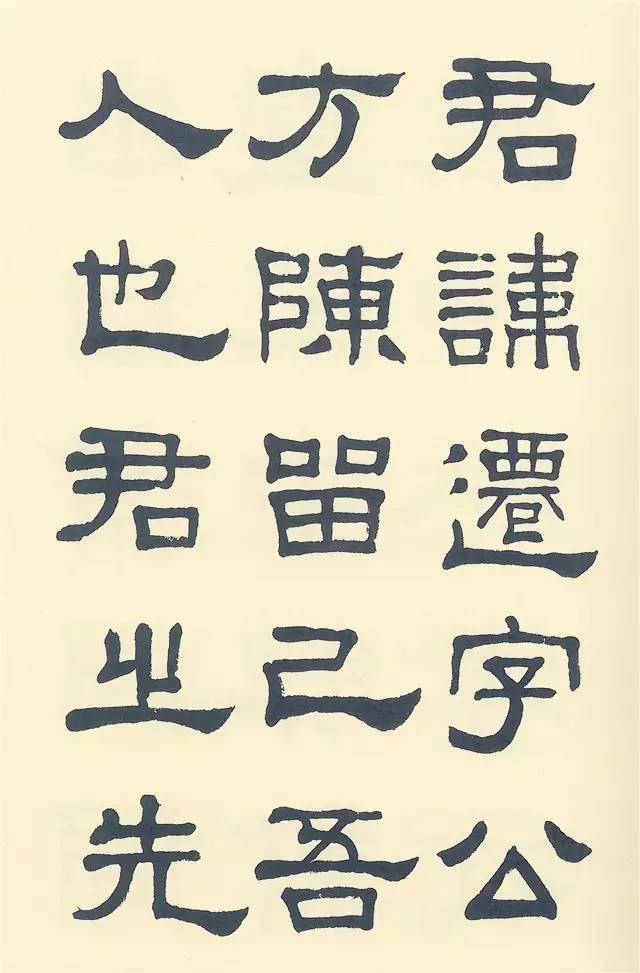 君諱遷字公
方陳留己吾
人也君之先